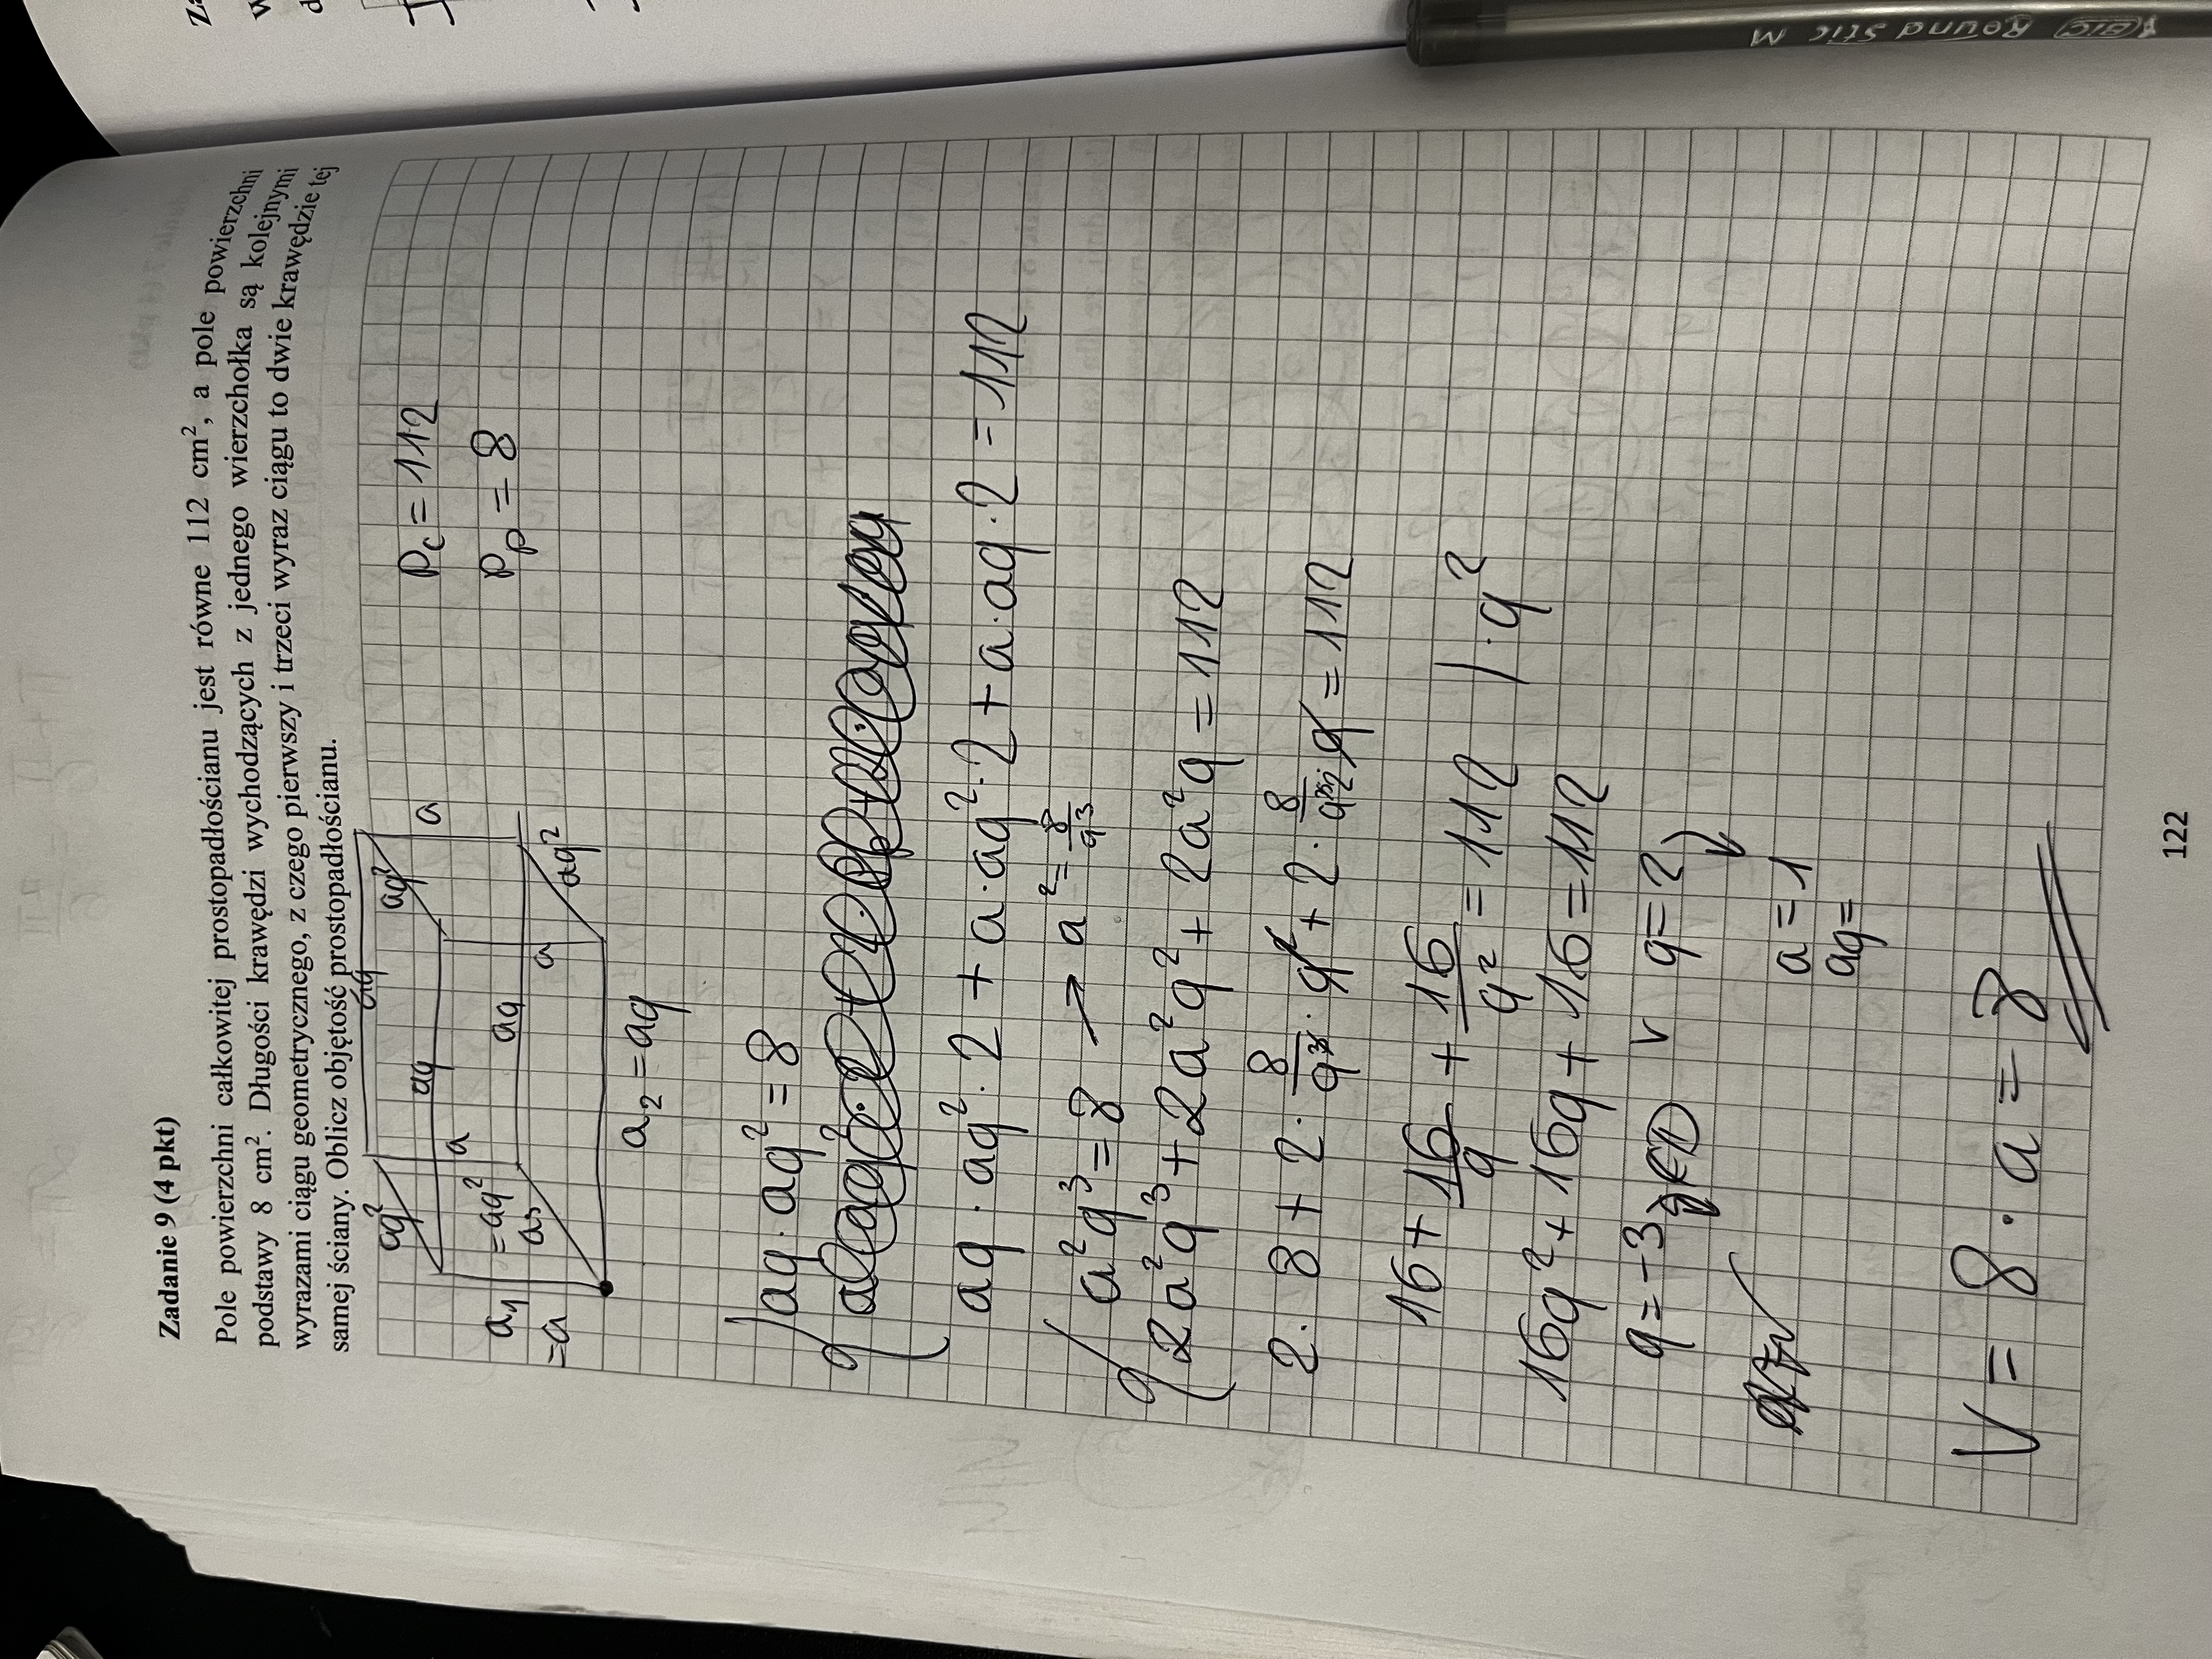 Zadanie 9 (4 pkt)
Pole powierzchni całkowitej prostopadłościanu jest równe 112 cm², a pole powierzchni
podstawy 8 cm². Długości krawędzi wychodzących z jednego wierzchołka są kolejnymi
wyrazami ciągu geometrycznego, z czego pierwszy i trzeci wyraz ciągu to dwie krawędzie tej
samej ściany. Oblicz objętość prostopadłościanu.
aq
aq² aq² a
aq
a
Pc = 112
Pp = 8
a₁ = aq² aq
=a a₃ a aq²
a₂ = aq
aq · aq² = 8
aq · aq² · 2 + a · aq² · 2 + a · aq · 2 = 112
a²q³ = 8 → a² = 8/q³
2a²q³ + 2a²q² + 2a²q = 112
2 · 8 + 2 · 8/q³ · q² + 2 · 8/q² · q = 112
16 + 16/q + 16/q² = 112 | · q²
16q² + 16q + 16 = 112
q = -3 ∉ D v q = 2
a = 1
aq =
V = 8 · a = 8
122
BIC Round Stic M